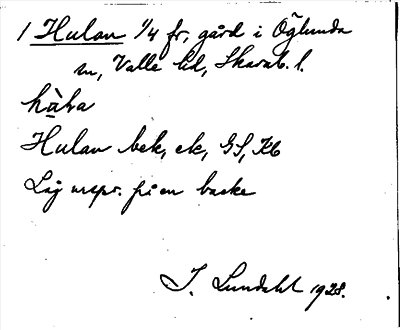 1 Hulan 1/4 fr, gård i Öglunda
sn, Valle hd, Skarab. l.
hà̱ḷa
Hulan bek, ek, GS, Kb
Låg urspr. på en backe
I. Lundahl 1928.